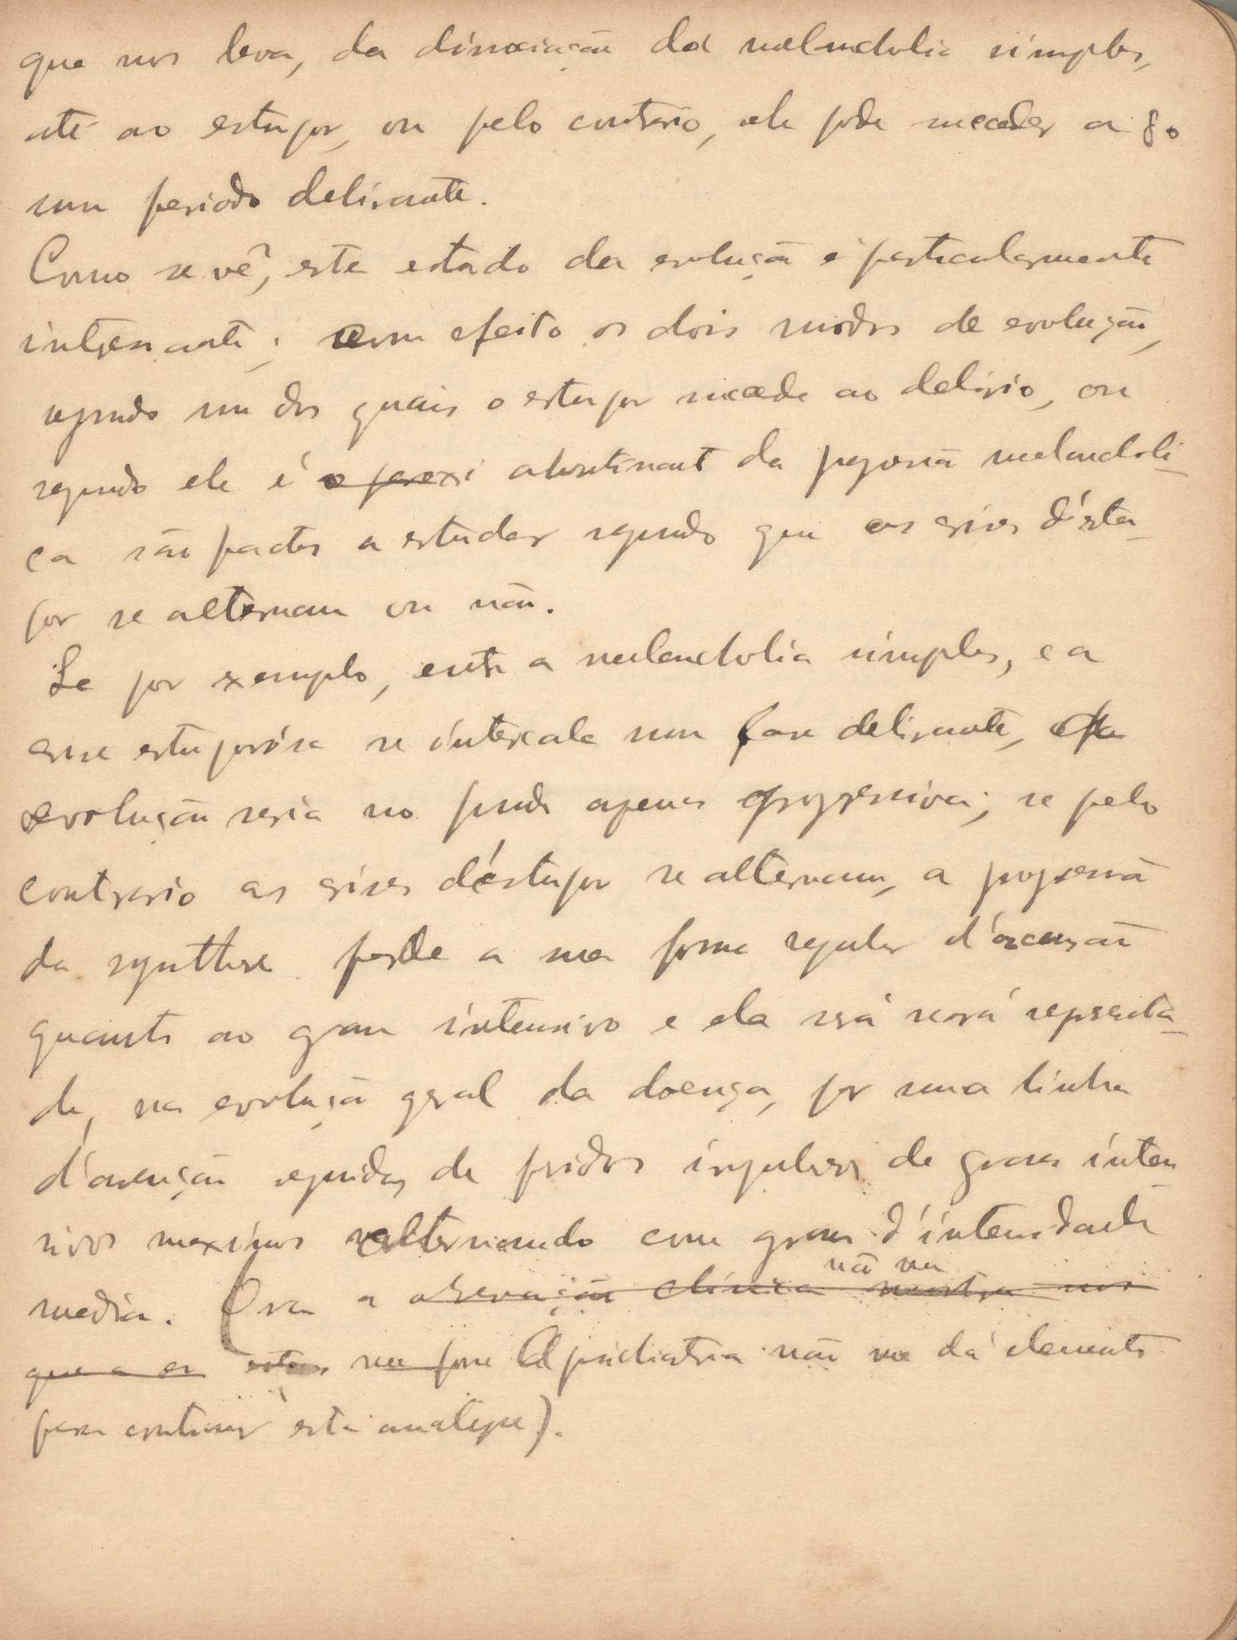 que nos leva, da dissociação da melancholia simples,
até ao estupor, ou pelo contrario, ele pode succeder a
um periodo delirante.
Como se vê, este estado da evolução é particularmente
interessante; com efeito os dois modos de evolução,
segundo um dos quais o estupor succede ao delirio, ou
segundo ele é o paroxi aboutissant da progressão melancholi-
ca são factos a estudar segundo que as crises d'estu-
por se alternam ou não.
Se por exemplo, entre a melancholia simples, e a
crise estuporósa se intercala uma fase delirante, esta
evolução seria no fundo apenas progressiva; se pelo
contrario as crises d'estupor se alternam, a progressão
da synthese perde a sua forma regular d'ascensão
quanto ao grau intensivo e ela será representa-
da, na evolução geral da doença, por uma linha
d'ascenção seguida de periodos irregulares de graus inten
sivos maximos alternando com graus d'intensidade
não me
media. (Ora a observação clinica mostra nos
que a es estas na forma A psichiatria não me dá elementos
para continuar esta analyse).